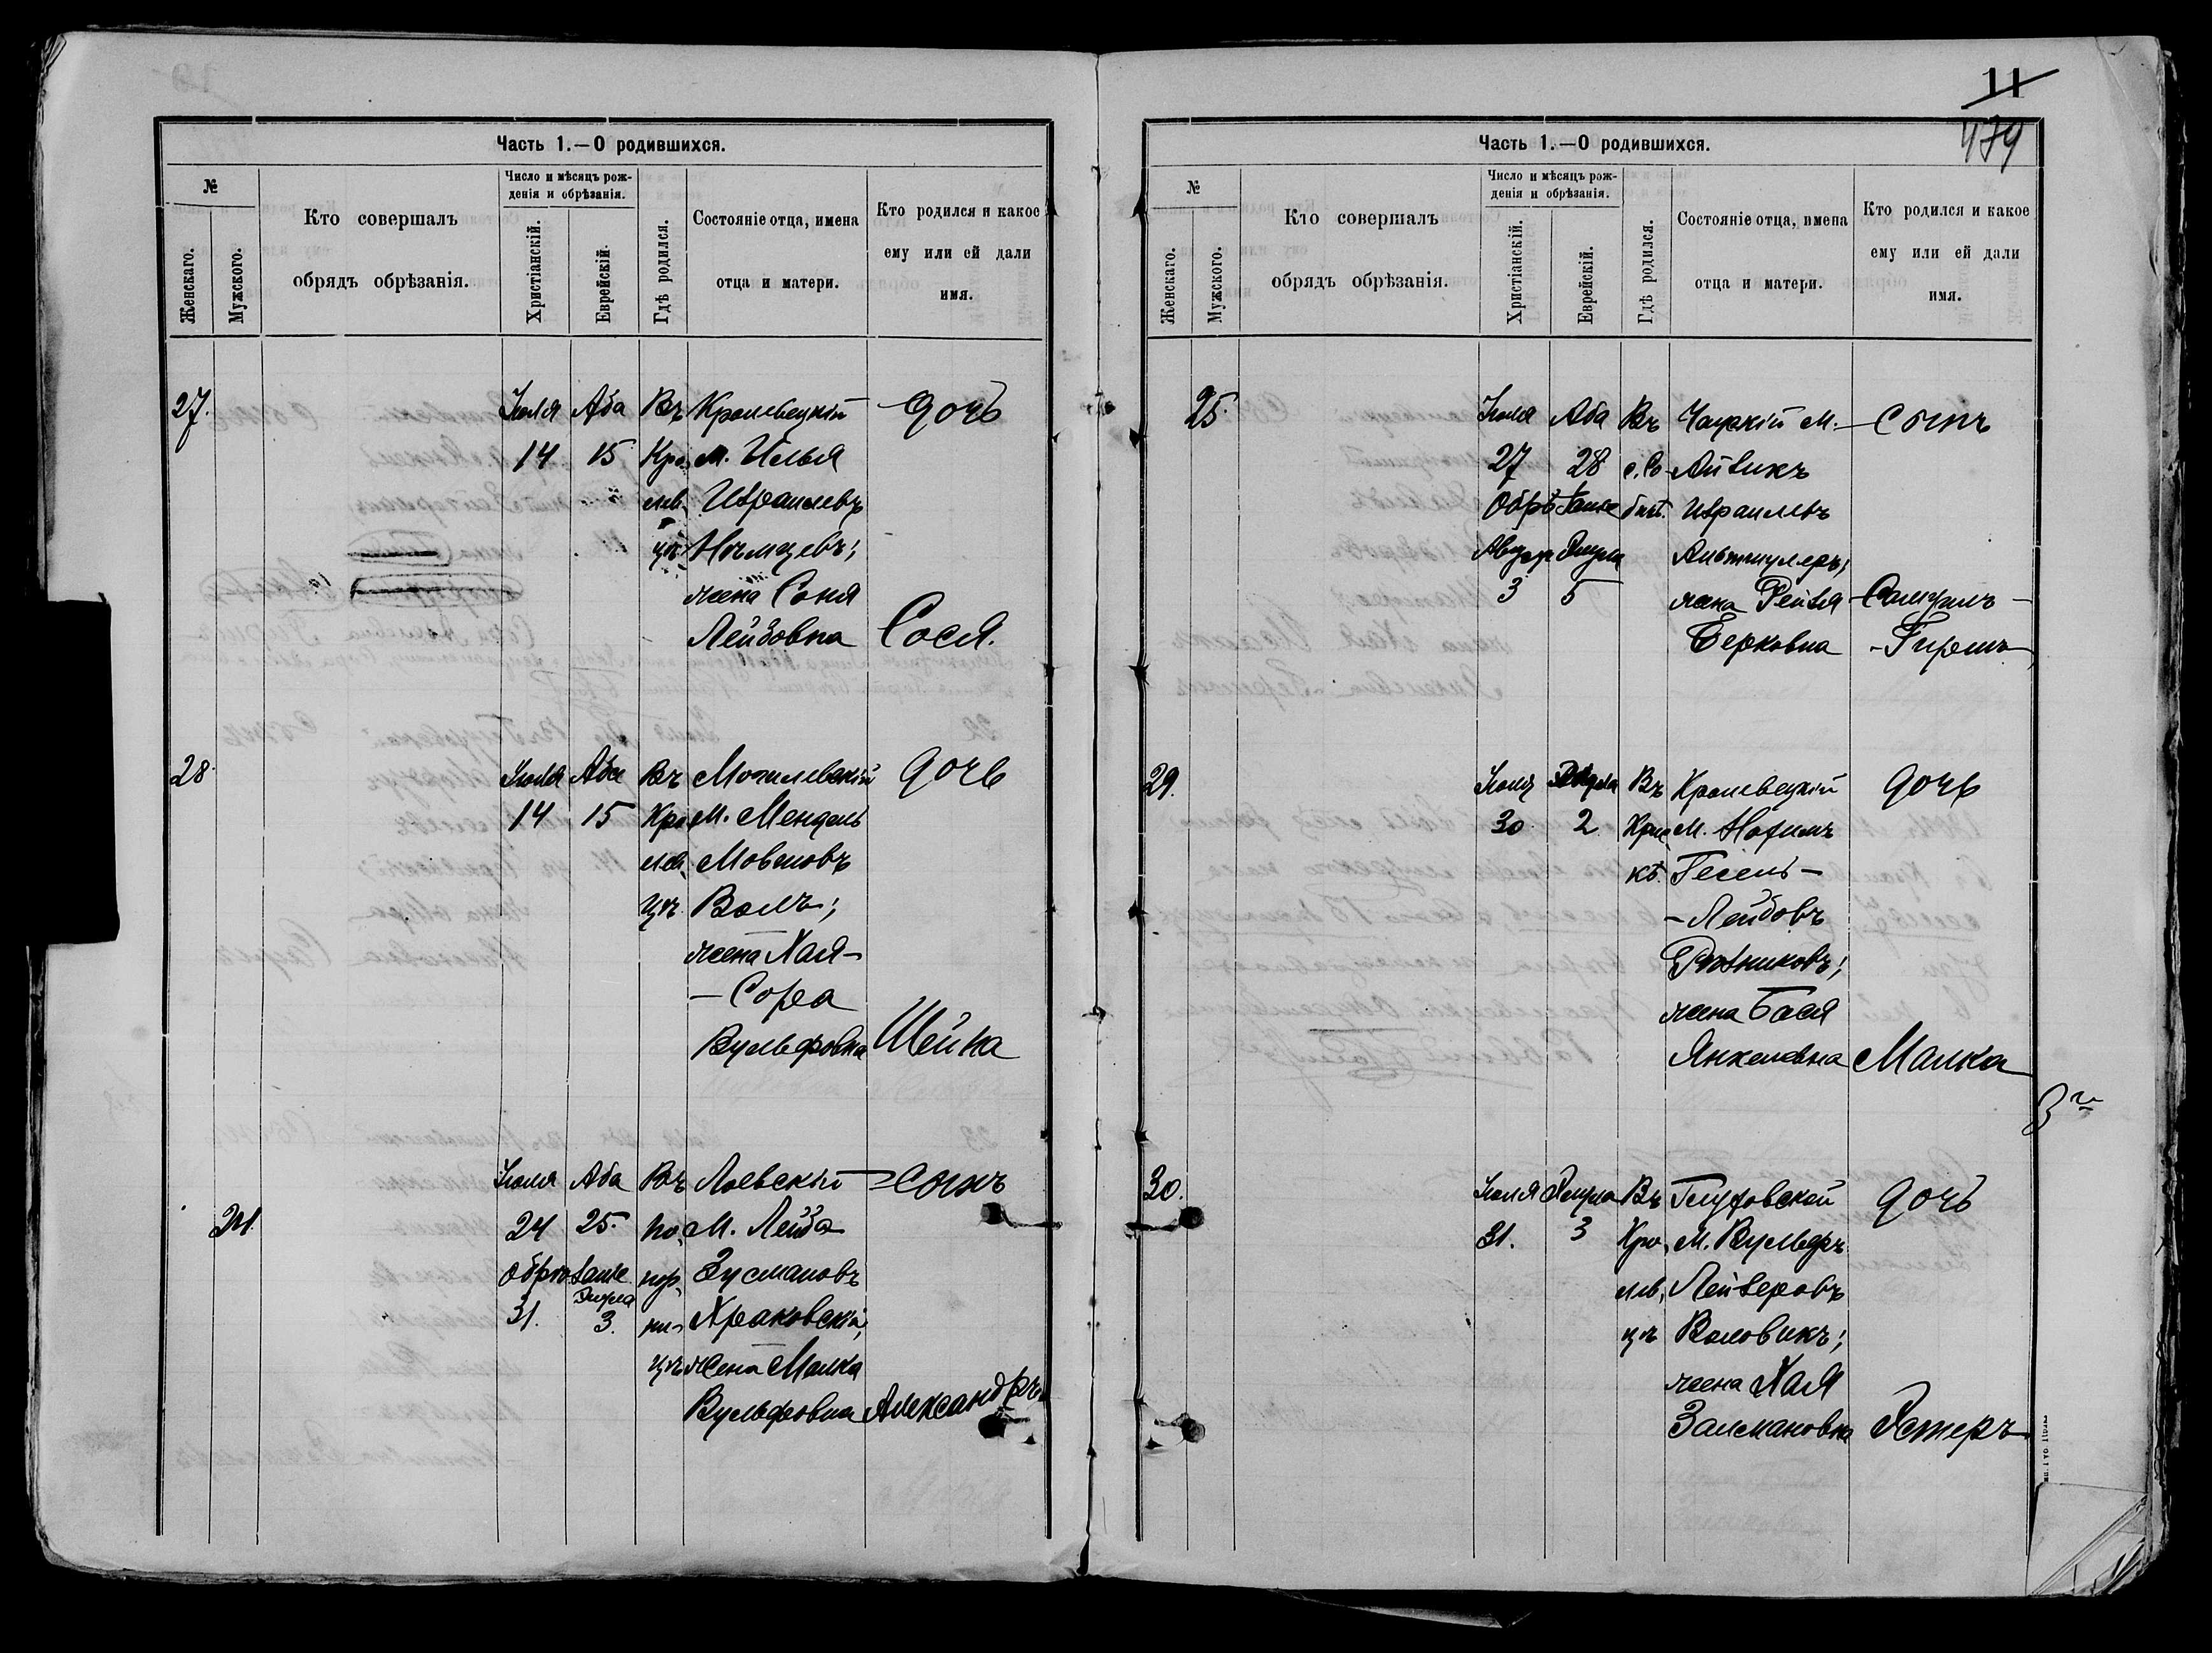 Часть 1.—О родившихся.
№
Женскаго.
Мужского.
Кто совершалъ
обрядъ обрѣзанія.
Число и мѣсяцъ рож-
денія и обрѣзанія.
Христіанскій.
Еврейскій.
Гдѣ родился.
Состояніе отца, имена
отца и матери.
Кто родился и какое
ему или ей дали
имя.
27. Іюля Аба Въ Кролевецкій дочь
14 15 Кро М. Илья
лев Израилевъ
цѣ Нѣмцевъ;
жена Соня
Лейбовна Сося.
28. Іюля Аба Въ Могилевскій дочь
14 15 Кро М. Мендель
лев Мовшовъ
цѣ Волъ;
жена Хая-
-Сора
Вульфовна Шейна
Іюля Аба Въ Лоевскій сынъ
24. 24 25. М. Лейба
Обрѣзаніе Зусмановъ
Элула Храковскій,
31. 3.
цѣ жена Малка
Вульфовна Александръ
11
479
Часть 1.—О родившихся.
№
Женскаго.
Мужского.
Кто совершалъ
обрядъ обрѣзанія.
Число и мѣсяцъ рож-
денія и обрѣзанія.
Христіанскій.
Еврейскій.
Гдѣ родился.
Состояніе отца, имена
отца и матери.
Кто родился и какое
ему или ей дали
имя.
25. Іюля Аба Въ Чаускій М. Сынъ
27 28 с. Со- Айзикъ
Обрѣзаніе Израилевъ
Август Элула Альтшулеръ;
3 5 жена Рейзя Самуилъ-
Берковна -Гиршъ
29. Іюля Элула Въ Кролевецкій дочь
30 2 М. Нохимъ
Гесель-
-Лейбовъ
Рѣзниковъ;
жена Бася
Янкелевна Малка
30. Іюля Элула Въ Глуховской дочь
31. 3 Кро М. Вульфъ
лев Лейзеровъ
цѣ Воловикъ;
жена Хая
Залмановна Эстеръ